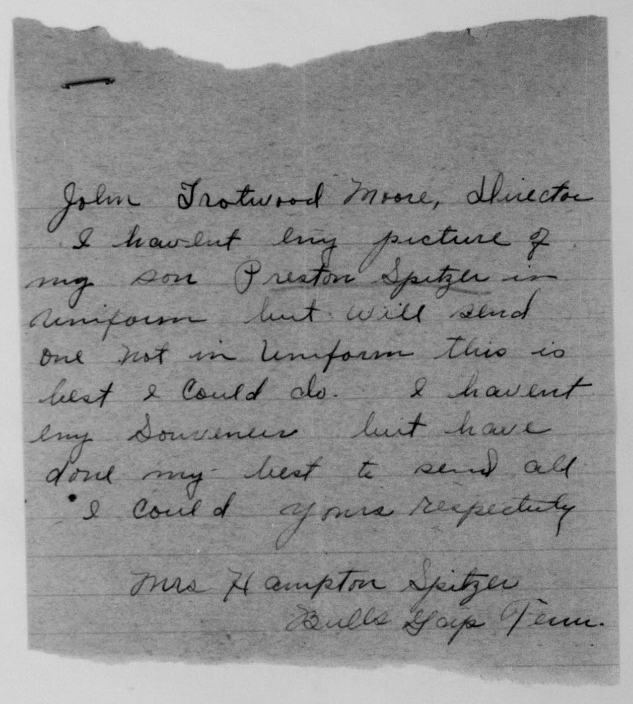 John Trotwood Moore, Director
I havent eny picture of
my son Preston Spitzer in
uniform but will send
one not in Uniform this is
best I could do. I havent
eny Souvenir but have
done my best to send all
I could yours respectuly
Mrs Hampton Spitzer
Bulls Gap Tenn.